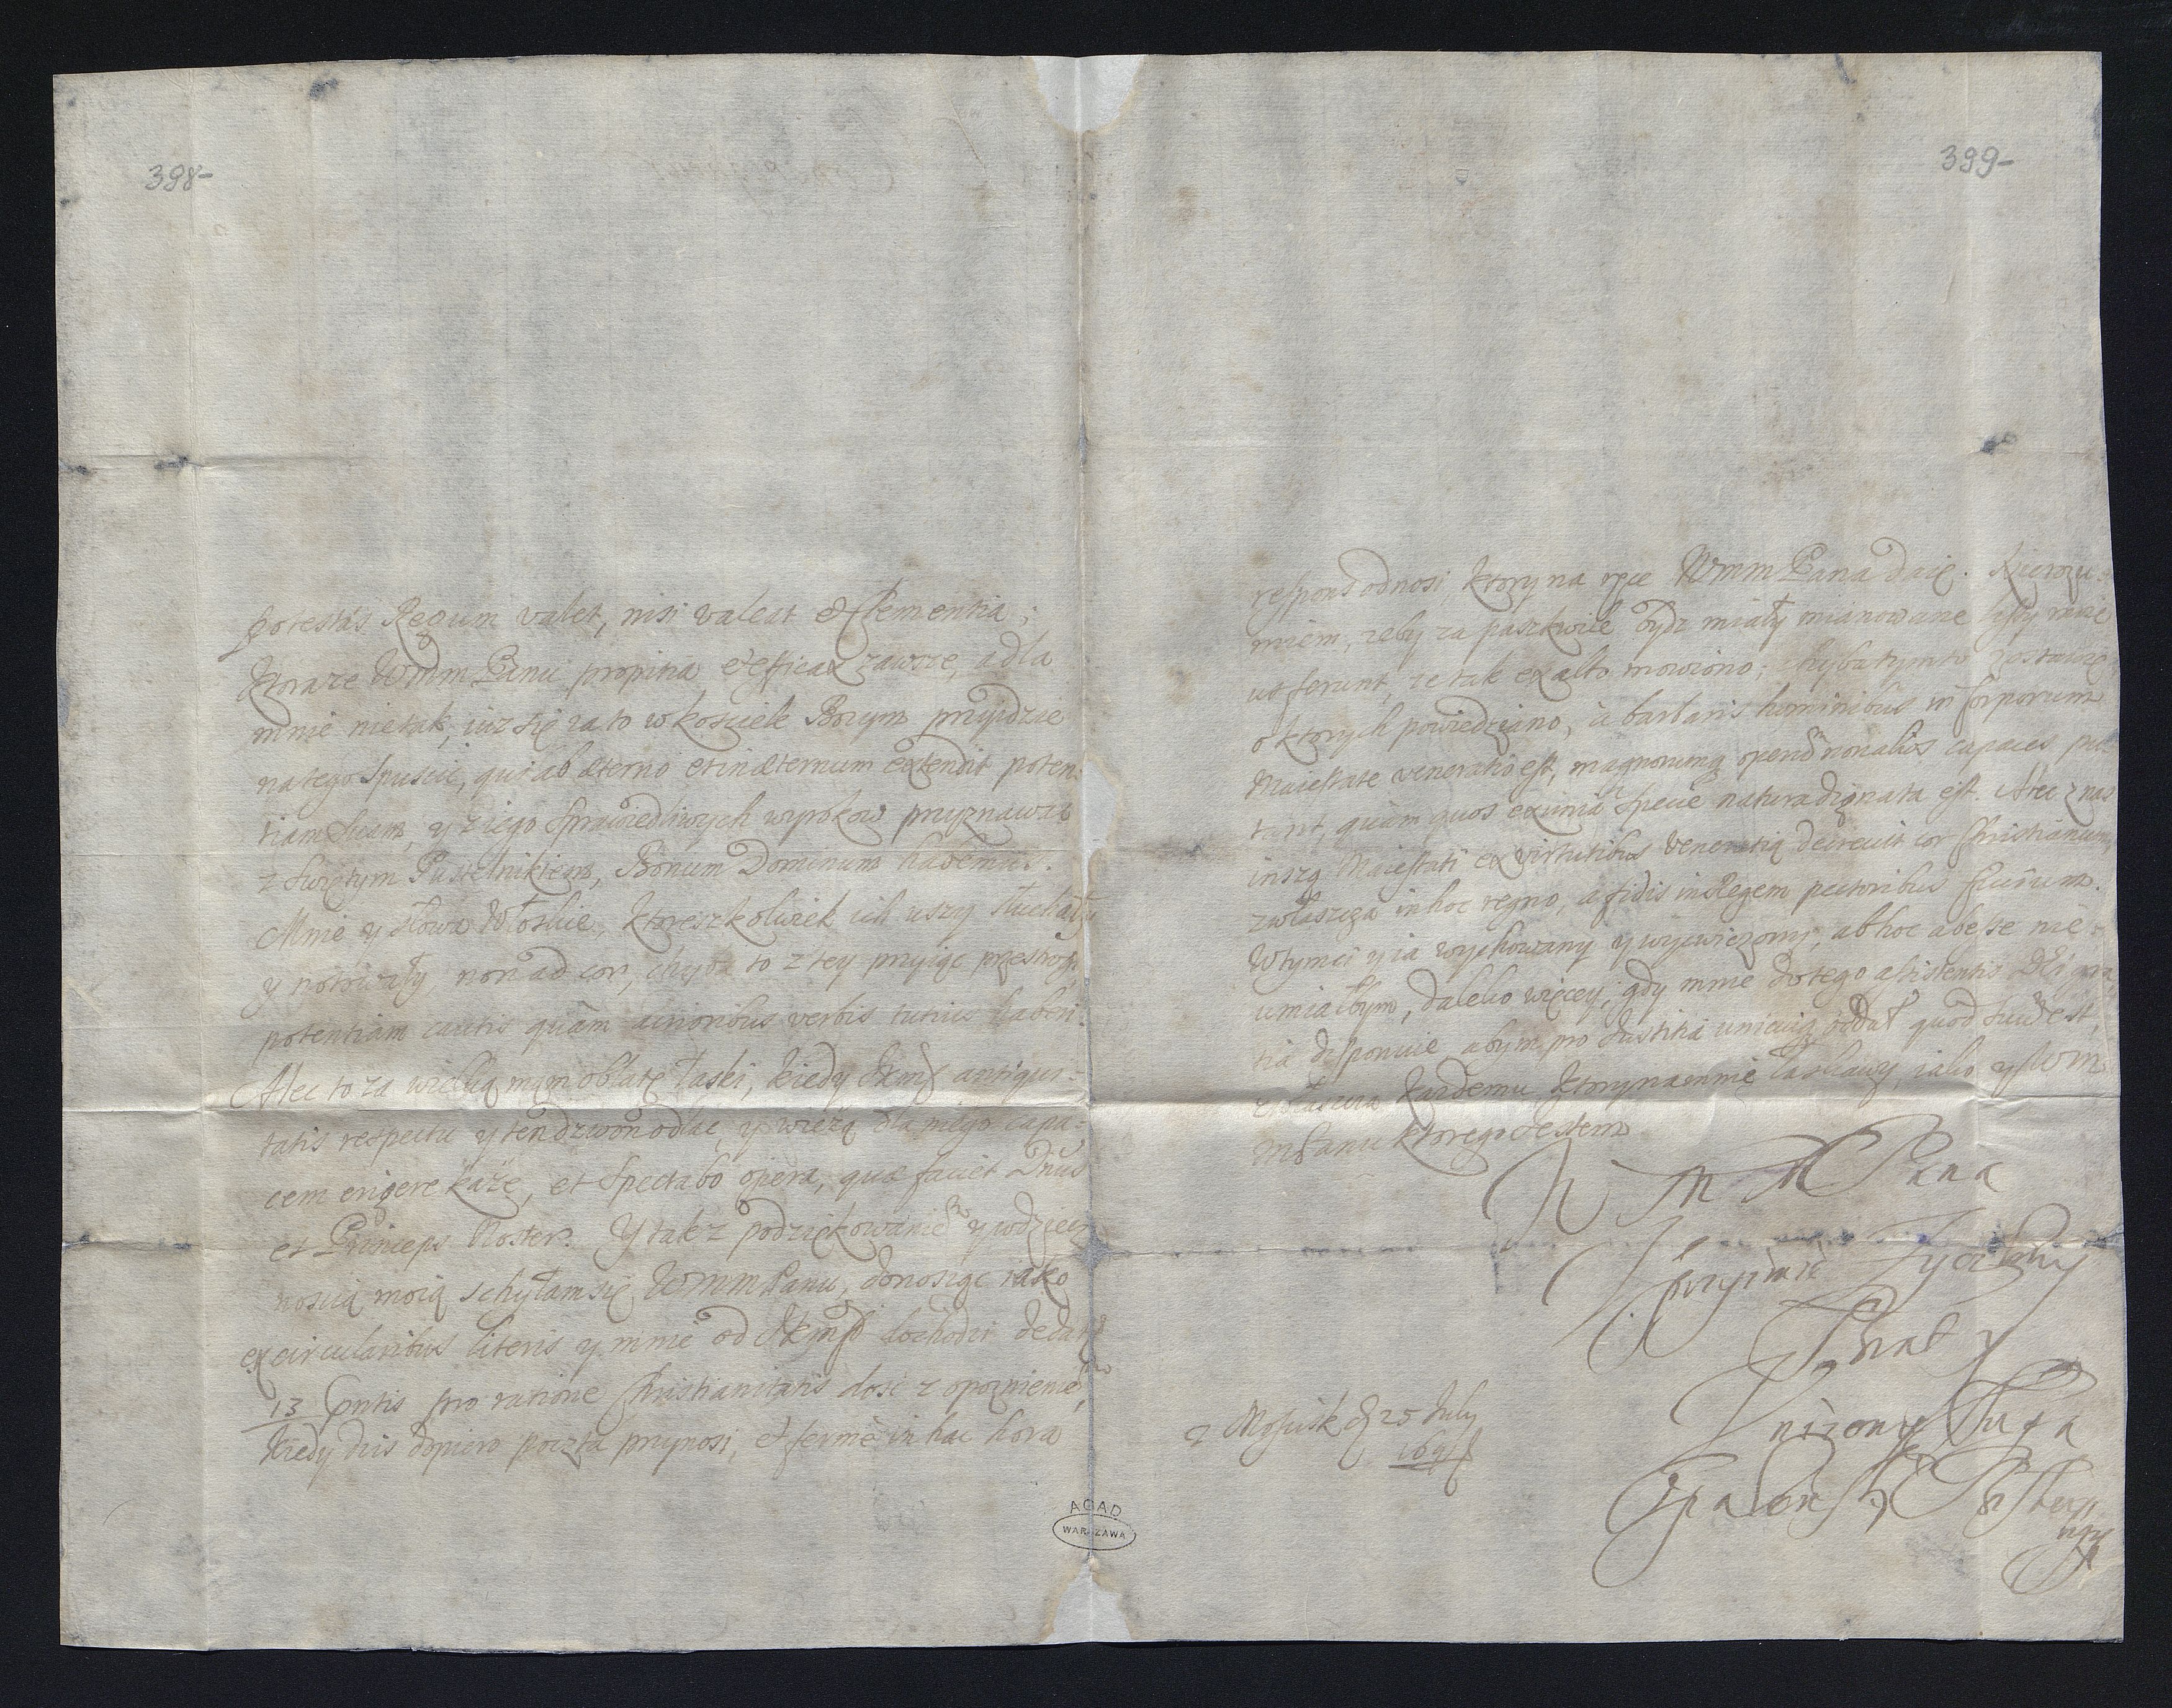 398-
potestas Regum valet, nisi valeat et Clementia;
ktora ze WMM Panu propitia et efficax zawsze, a dla
mnie nie tak, iuz się za to w kosciele Bozym przyidzie
na tego spuscic, qui ab æterno et in æternum extendit poten-
tiam suam, y z iego sprawiedliwych wyrokow przyznawać
z Swiętym Pustelnikiem, Bonum Dominum habemus.
Mnie y słowa Włoskie, ktoreszkolwiek ich uszy słuchały
y notowały, non ad cor, chyba to z tey przyiąc przestrogi
potentiam cautis quàm acrioribus verbis tutius haberi.
Alec to za wielką mam oblatę łaski, kiedy JKMć antiqui-
tatis respectu y ten dzwon odlac, y wiezą dla niego capa-
cem erigere każe, et spectabo opera, quæ faciet Dnūs
et Princeps Noster. Y tak z podziękowaniem y wdzięcz
noscią moią schyłam się WMM Panu, donosząc iako
ex circularibus literis y mnie od JKMći dochodzi de data
13 Pntis pro ratione Christianitatis dosc z opoznieniem,
kiedy dzis dopiero poczta przynosi, et fermè in hac hora
399-
respons odnosi, ktory na ręce WMM Pana daię. Nierozu-
miem, zeby za paszkwile bydz miały mianowane listy
ut ferunt, ze tak ex alto mowiono; chyba tym to
o ktorych powiedziano, à barbaris hominibus in corporum
Maiestate veneratio est, magnorumq operũ non alios capaces pu
tant, quàm quos eximia specie natura dignata est. Alec z nas
inszą Maiestati ex virtutibus veneratią decrevit cor Christianum,
zwłaszcza in hoc regno, a fidis in Regem pectoribus
W tymci y ia wychowany y wycwiczony, ab hoc abesse nie
umiałbym, daleko więcey, gdy mnie do tego assistentis Dei gra
tia disponuie abym pro Justitia unicuiq oddał quod suũ est,
zwłaszcza kazdemu, ktory na mnie łaskawy, iako y WM
M Panu ktorego iestem
W M M Pana
Uprzyimie Zyczliwy
Brat y
Unizony Sługa
z Młusk d 25 July
AGAD
WARSZAWA